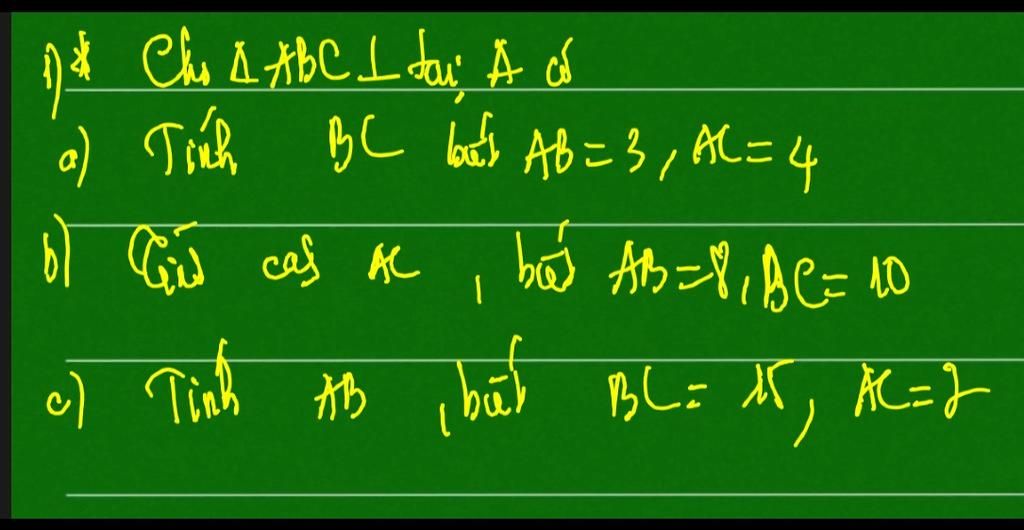 1)* Cho Δ ABC ⊥ tại A có
a) Tính BC biết AB = 3, AC = 4
b) Tính cạnh AC, biết AB = 8, BC = 10
c) Tính AB, biết BC = 15, AC = 2